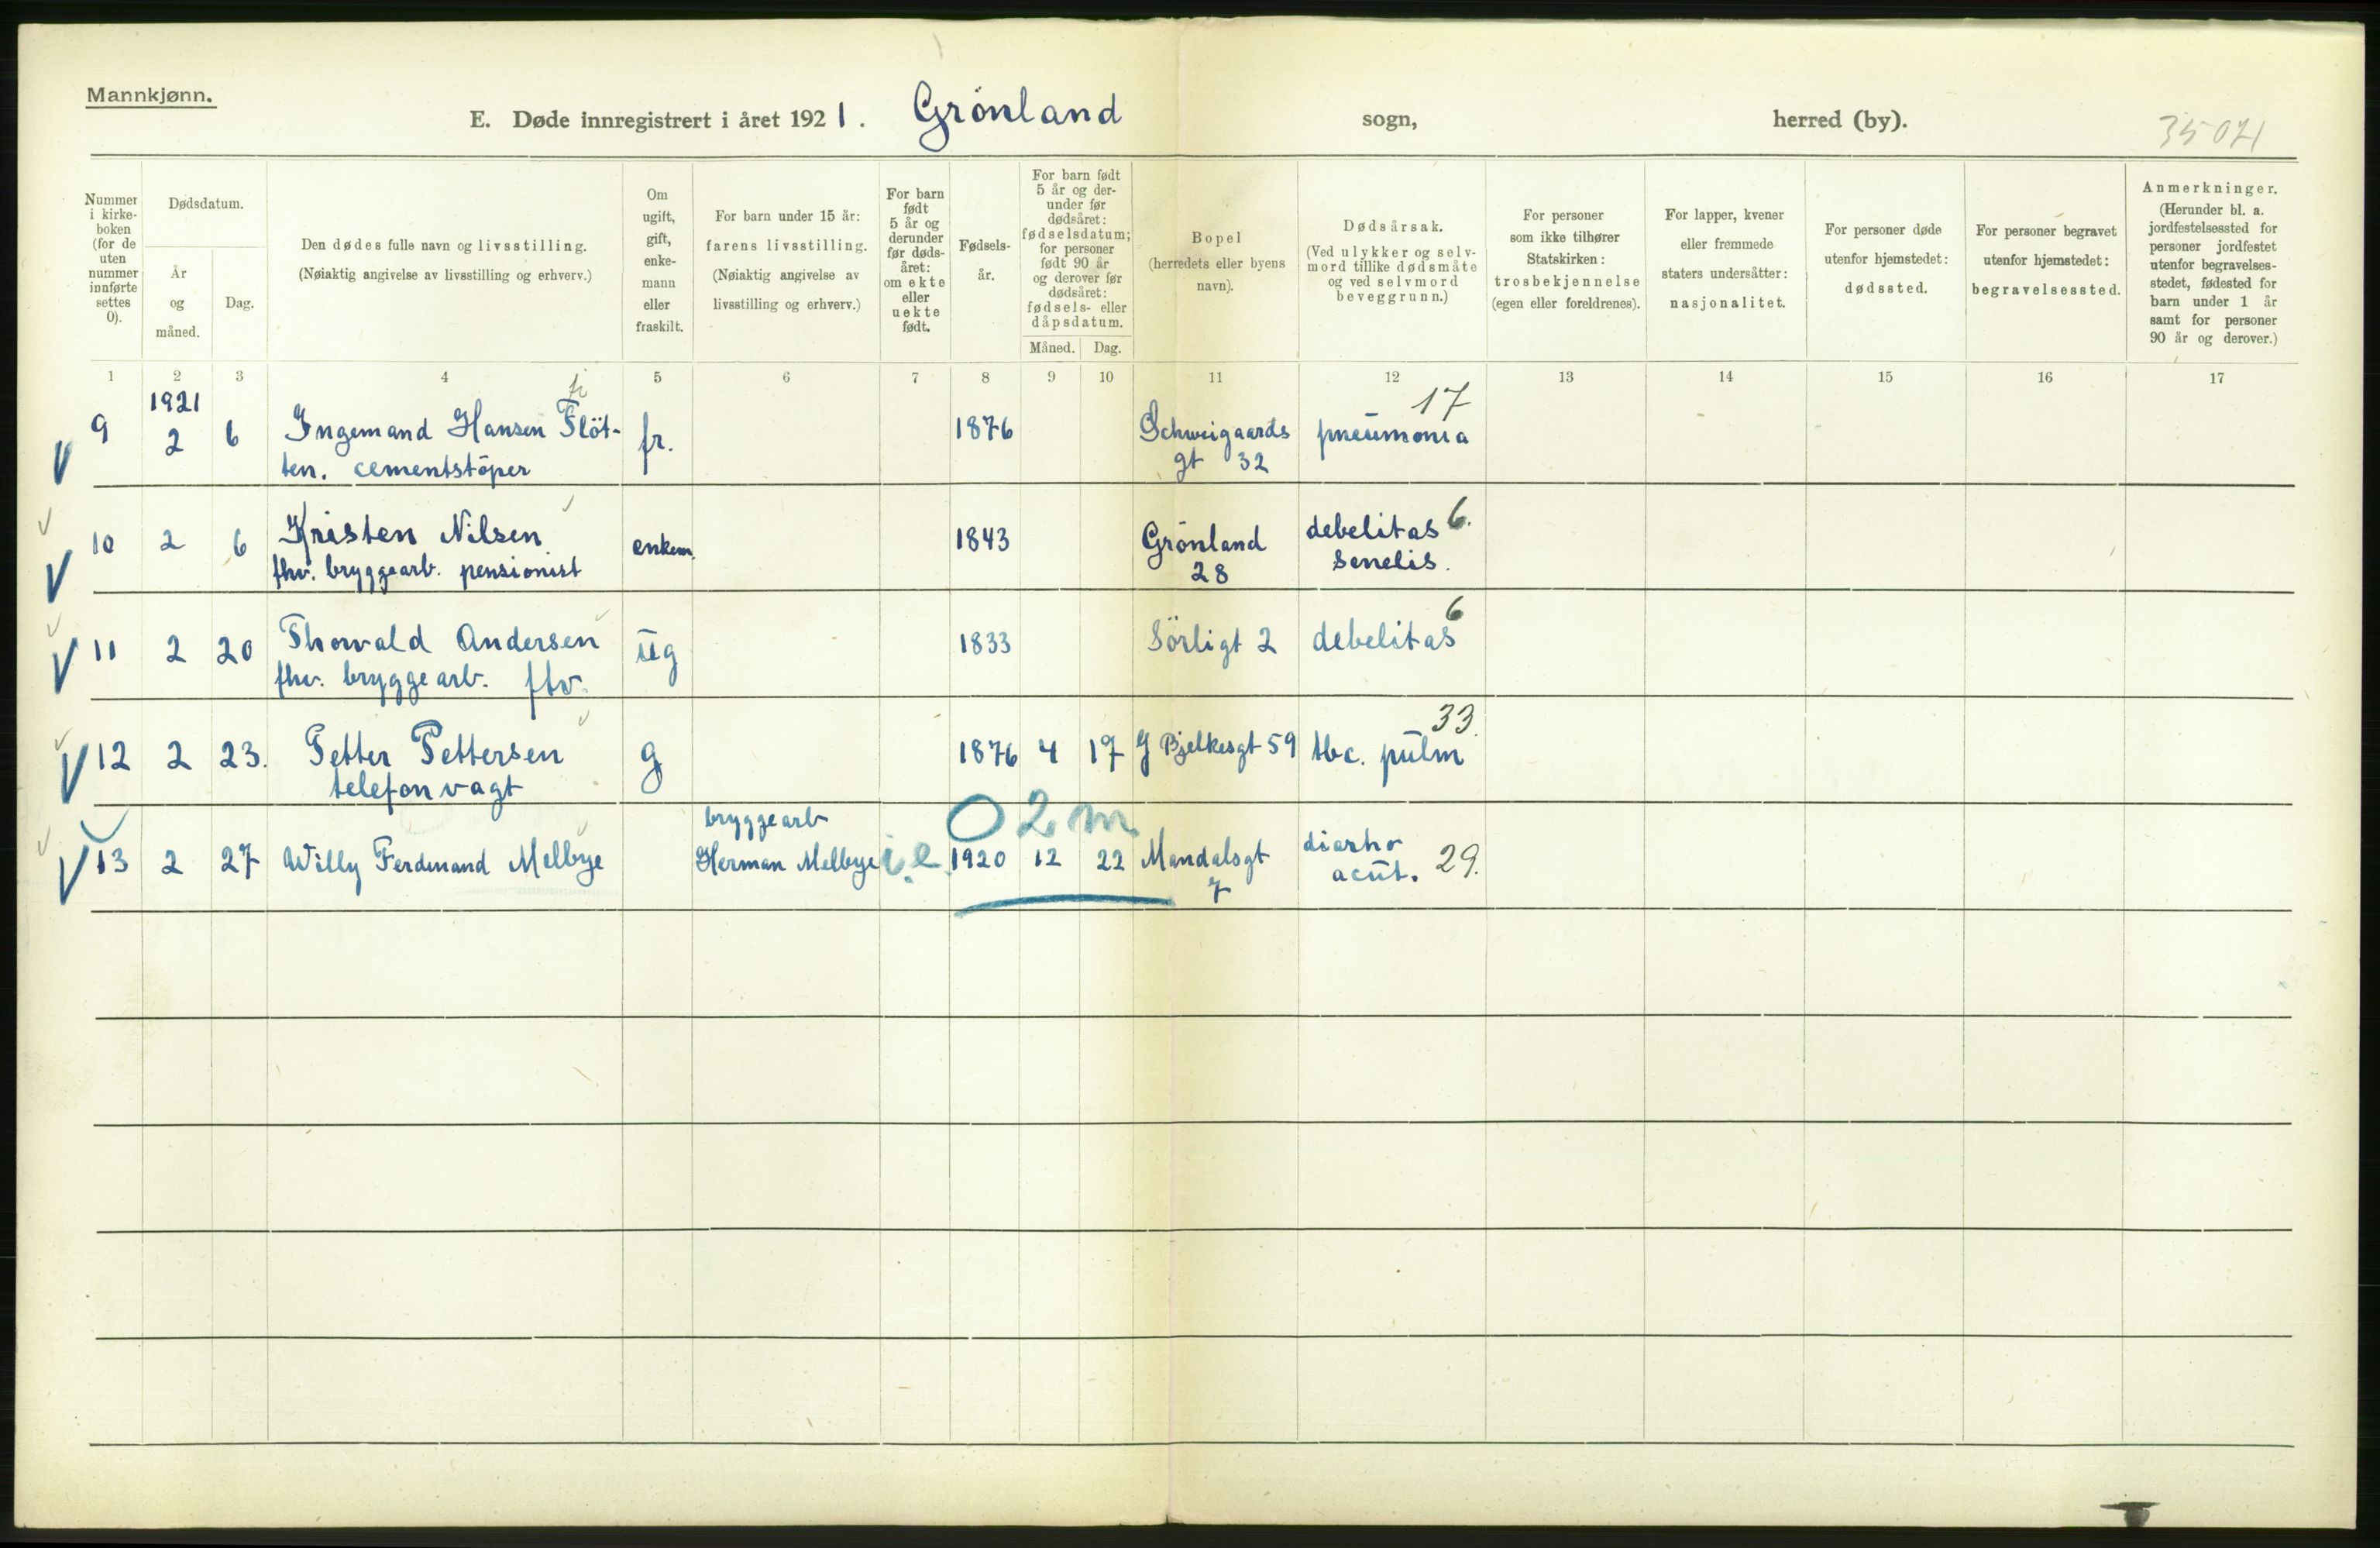 Mannkjønn.
E. Døde innregistrert i året 1921. Grönland sogn, herred (by).
3504
Nummer i kirke-boken (for de uten nummer innførte settes 0).
Dødsdatum.
År og måned.
Dag.
Den dødes fulle navn og livsstilling.
(Nøiaktig angivelse av livsstilling og erhverv.)
Om ugift, gift, enke-mann eller fraskilt.
For barn under 15 år:
farens livsstilling.
(Nøiaktig angivelse av
livsstilling og erhverv.)
For barn født 5 år og derunder før døds-året: om ekte eller uekte født.
Fødsels-år.
For barn født 5 år og der-under før dødsåret: fødselsdatum; for personer født 90 år og derover før dødsåret: fødsels- eller dåpsdatum.
Måned. Dag.
Bopel
(herredets eller byens navn).
Dødsårsak.
(Ved ulykker og selv-mord tillike dødsmåte og ved selvmord beveggrunn.)
For personer som ikke tilhører Statskirken: trosbekjennelse (egen eller foreldrenes).
For lapper, kvener eller fremmede staters undersåtter: nasjonalitet.
For personer døde utenfor hjemstedet: dødssted.
For personer begravet utenfor hjemstedet: begravelsessted.
Anmerkninger.
(Herunder bl. a. jordfestelsessted for personer jordfestet utenfor begravelses-stedet, fødested for barn under 1 år samt for personer 90 år og derover.)
1 2 3 4 5 6 7 8 9 10 11 12 13 14 15 16 17
1921
17
9 2 6 Ingemand Hansen Flöt- fr. 1876 Schweigaards pneumonia
ten. cementstöper gt 32
10 2 6 Kristen Nilsen enkem. 1843 Grönland debelitas 6.
fhv. bryggearb. pensionist 28 senelis.
11 2 20 Thorvald Andersen ug 1833 Sörligt 2 debelitas 6
fhv. bryggearb. fhv.
33.
12 2 23. Petter Pettersen g 1876 4 17 J Bjelkesgt 59 tbc. pulm
telefonvagt
bryggearb 0 2 m
13 2 27 Willy Ferdinand Melbye Herman Melbye i.e. 1920 12 22 Mandalsgt diarho
7 acut. 29.